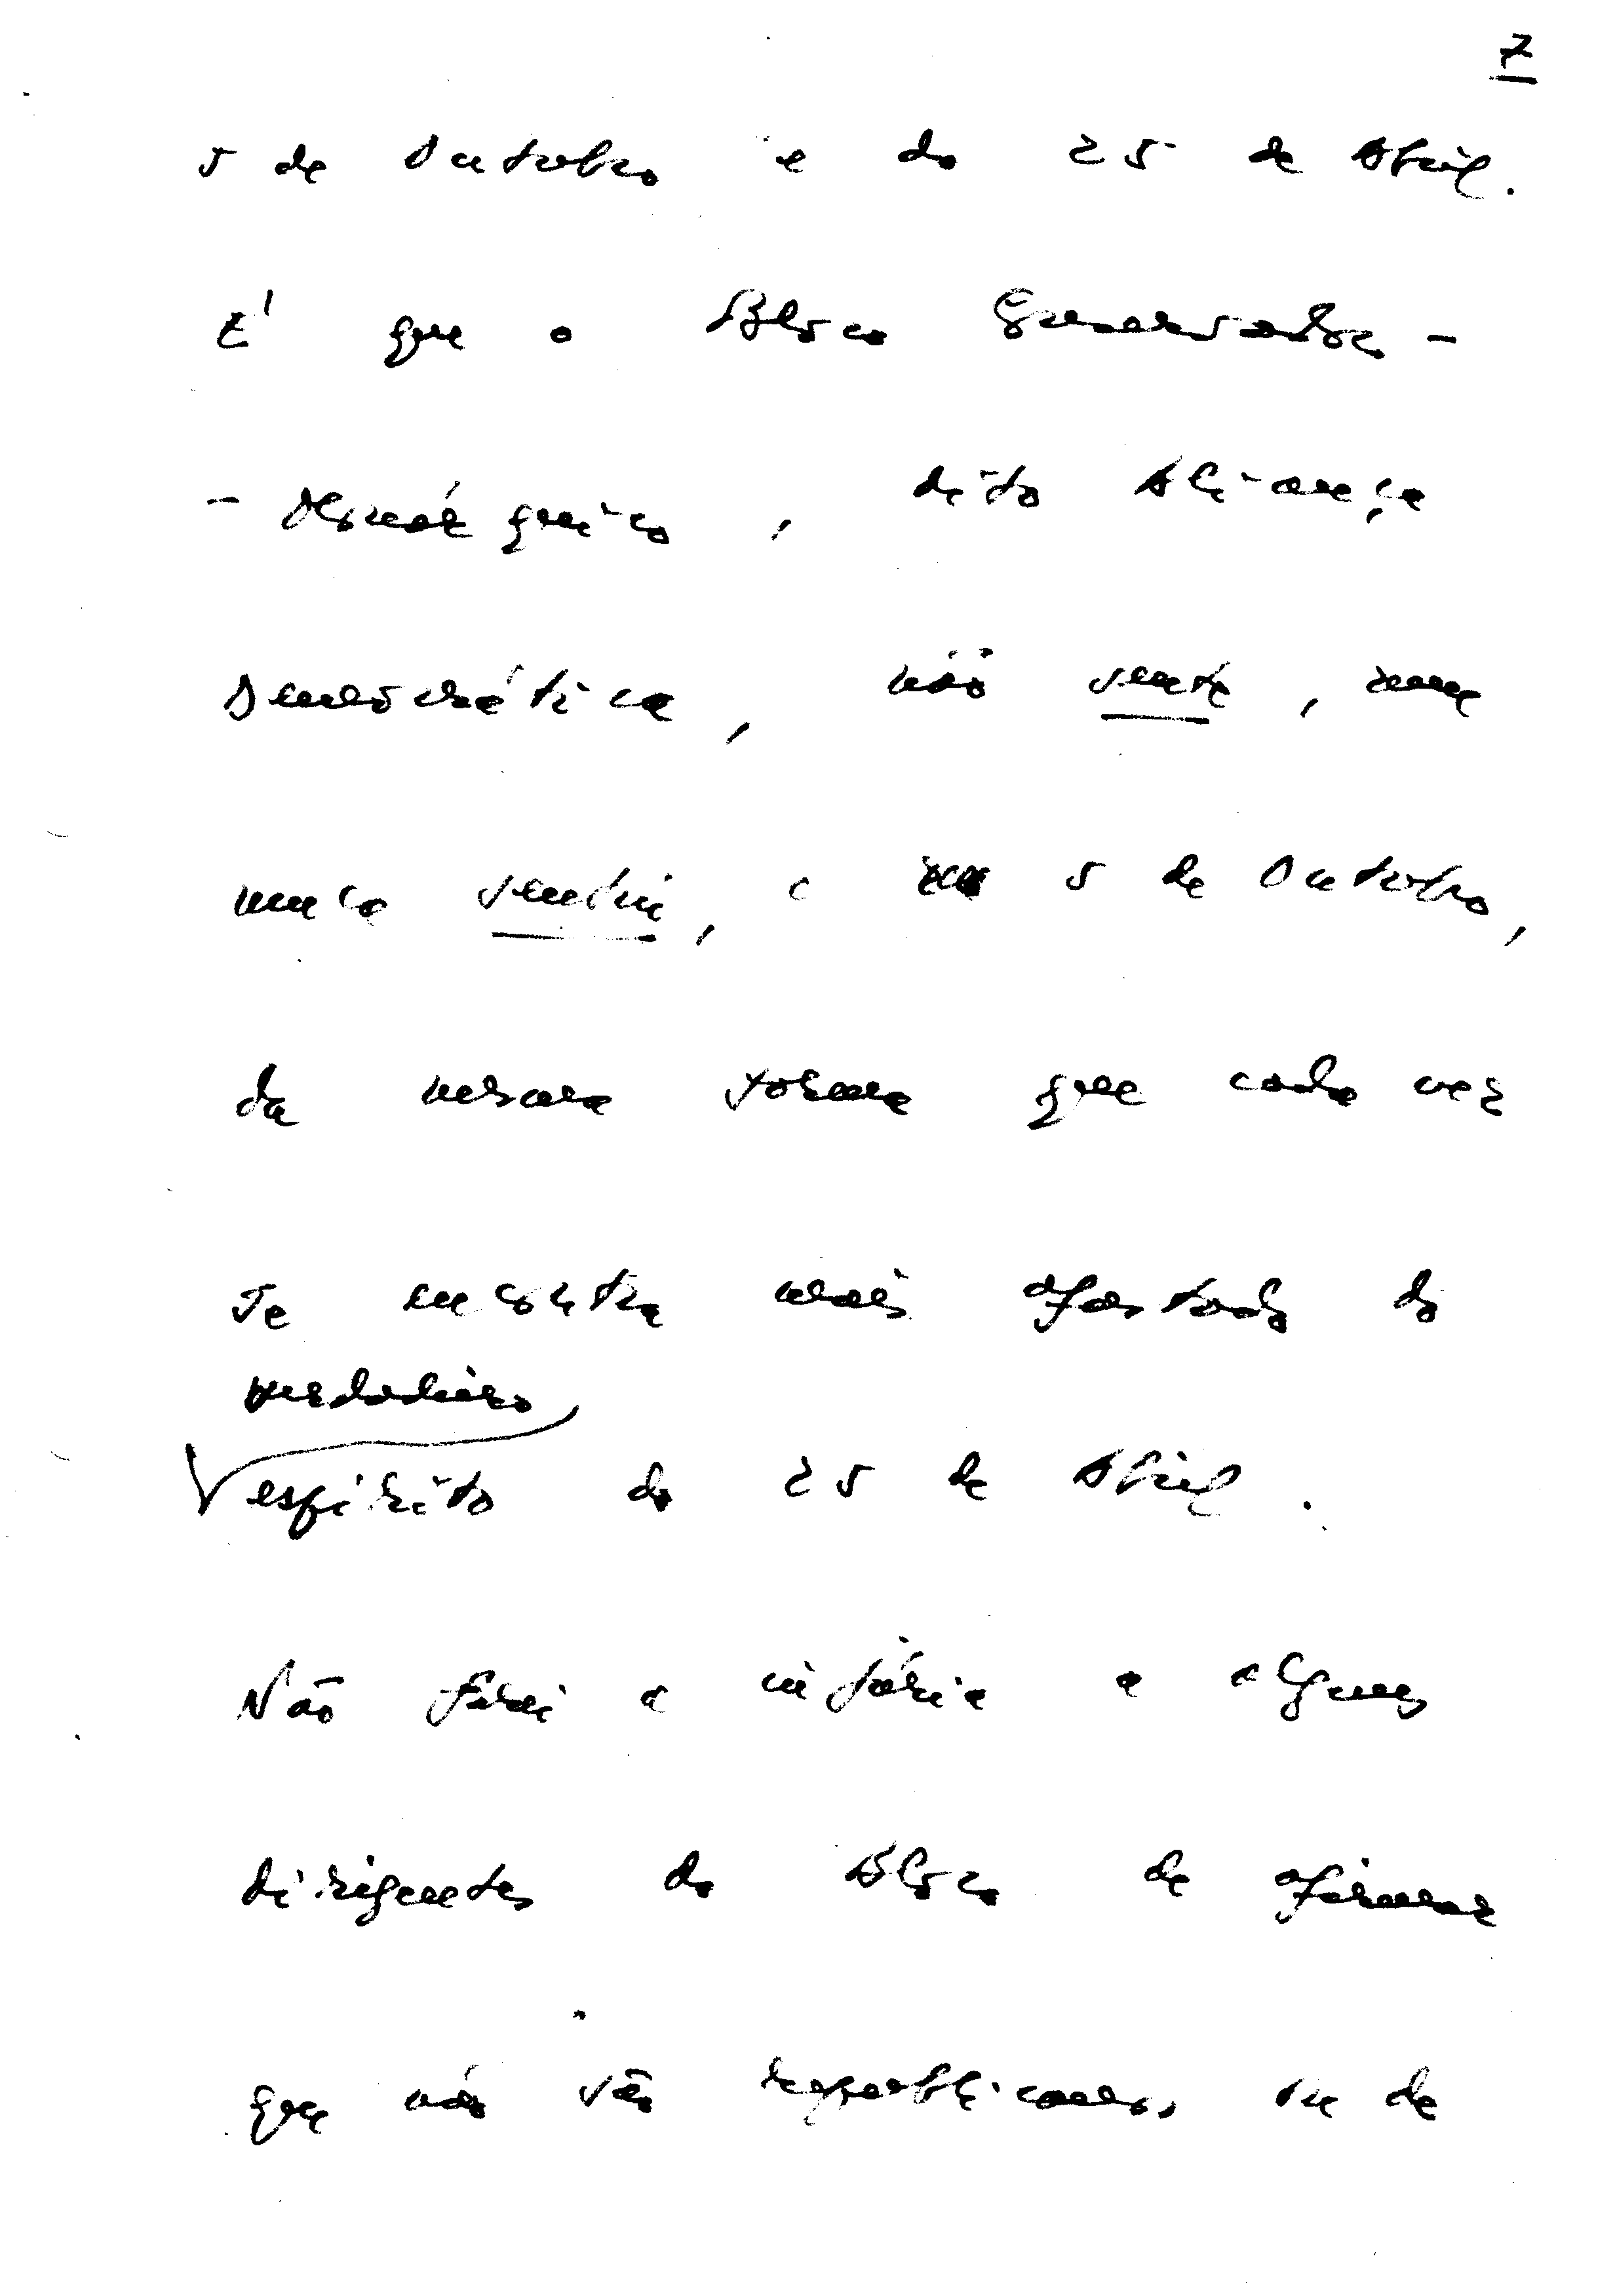 7
5 de Outubro e do 25 de Abril.
É que o Bloco Conservador-
- Monárquico, dito Aliança
Democrática, não sente, nem
nunca sentiu, o 5 de Outubro,
da mesma forma que cada vez
se encontra mais afastado do
verdadeiro
espírito do 25 de Abril.
Não farei a injúria a alguns
dirigentes do Bloco de afirmar
que não são republicanos, ou de